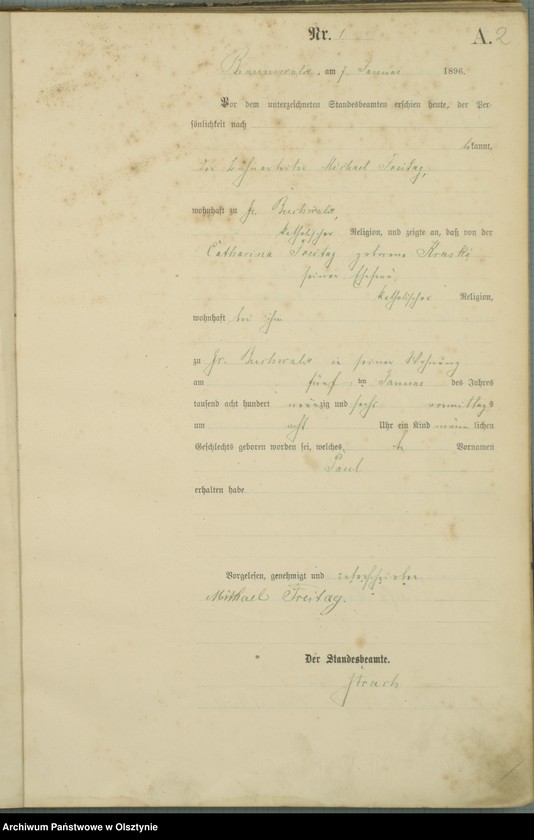 Nr. 1
A. 2
Braunswalde, am 7. Januar 1896.
Vor dem unterzeichneten Standesbeamten erschien heute, der Per-
sönlichkeit nach
bekannt,
der Michael Freitag,
wohnhaft zu Gr. Buchwalde,
katholischer Religion, und zeigte an, daß von der
Catharina Freitag geborene Kraski
seiner Ehefrau
katholischer Religion,
wohnhaft bei ihm
zu Gr. Buchwalde in seiner Wohnung
am fünf ten Januar des Jahres
tausend acht hundert neunzig und sechs vormittags
um acht Uhr ein Kind männlichen
Geschlechts geboren worden sei, welches Vornamen
Paul
erhalten habe.
Vorgelesen, genehmigt und unterschrieben
Michael Freitag.
Der Standesbeamte.
Archiwum Państwowe w Olsztynie